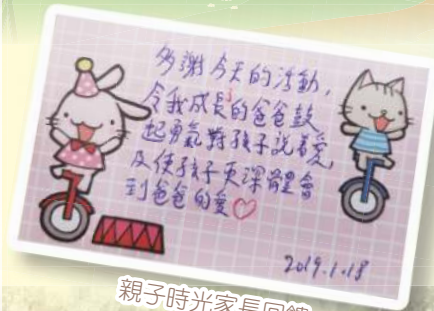 多謝今天的活動,
令我成長了的爸爸鼓
起勇氣對孩子說着愛,
及使孩子更深體會
到爸爸的愛♡
2019.1.18
親子時光家長回饋